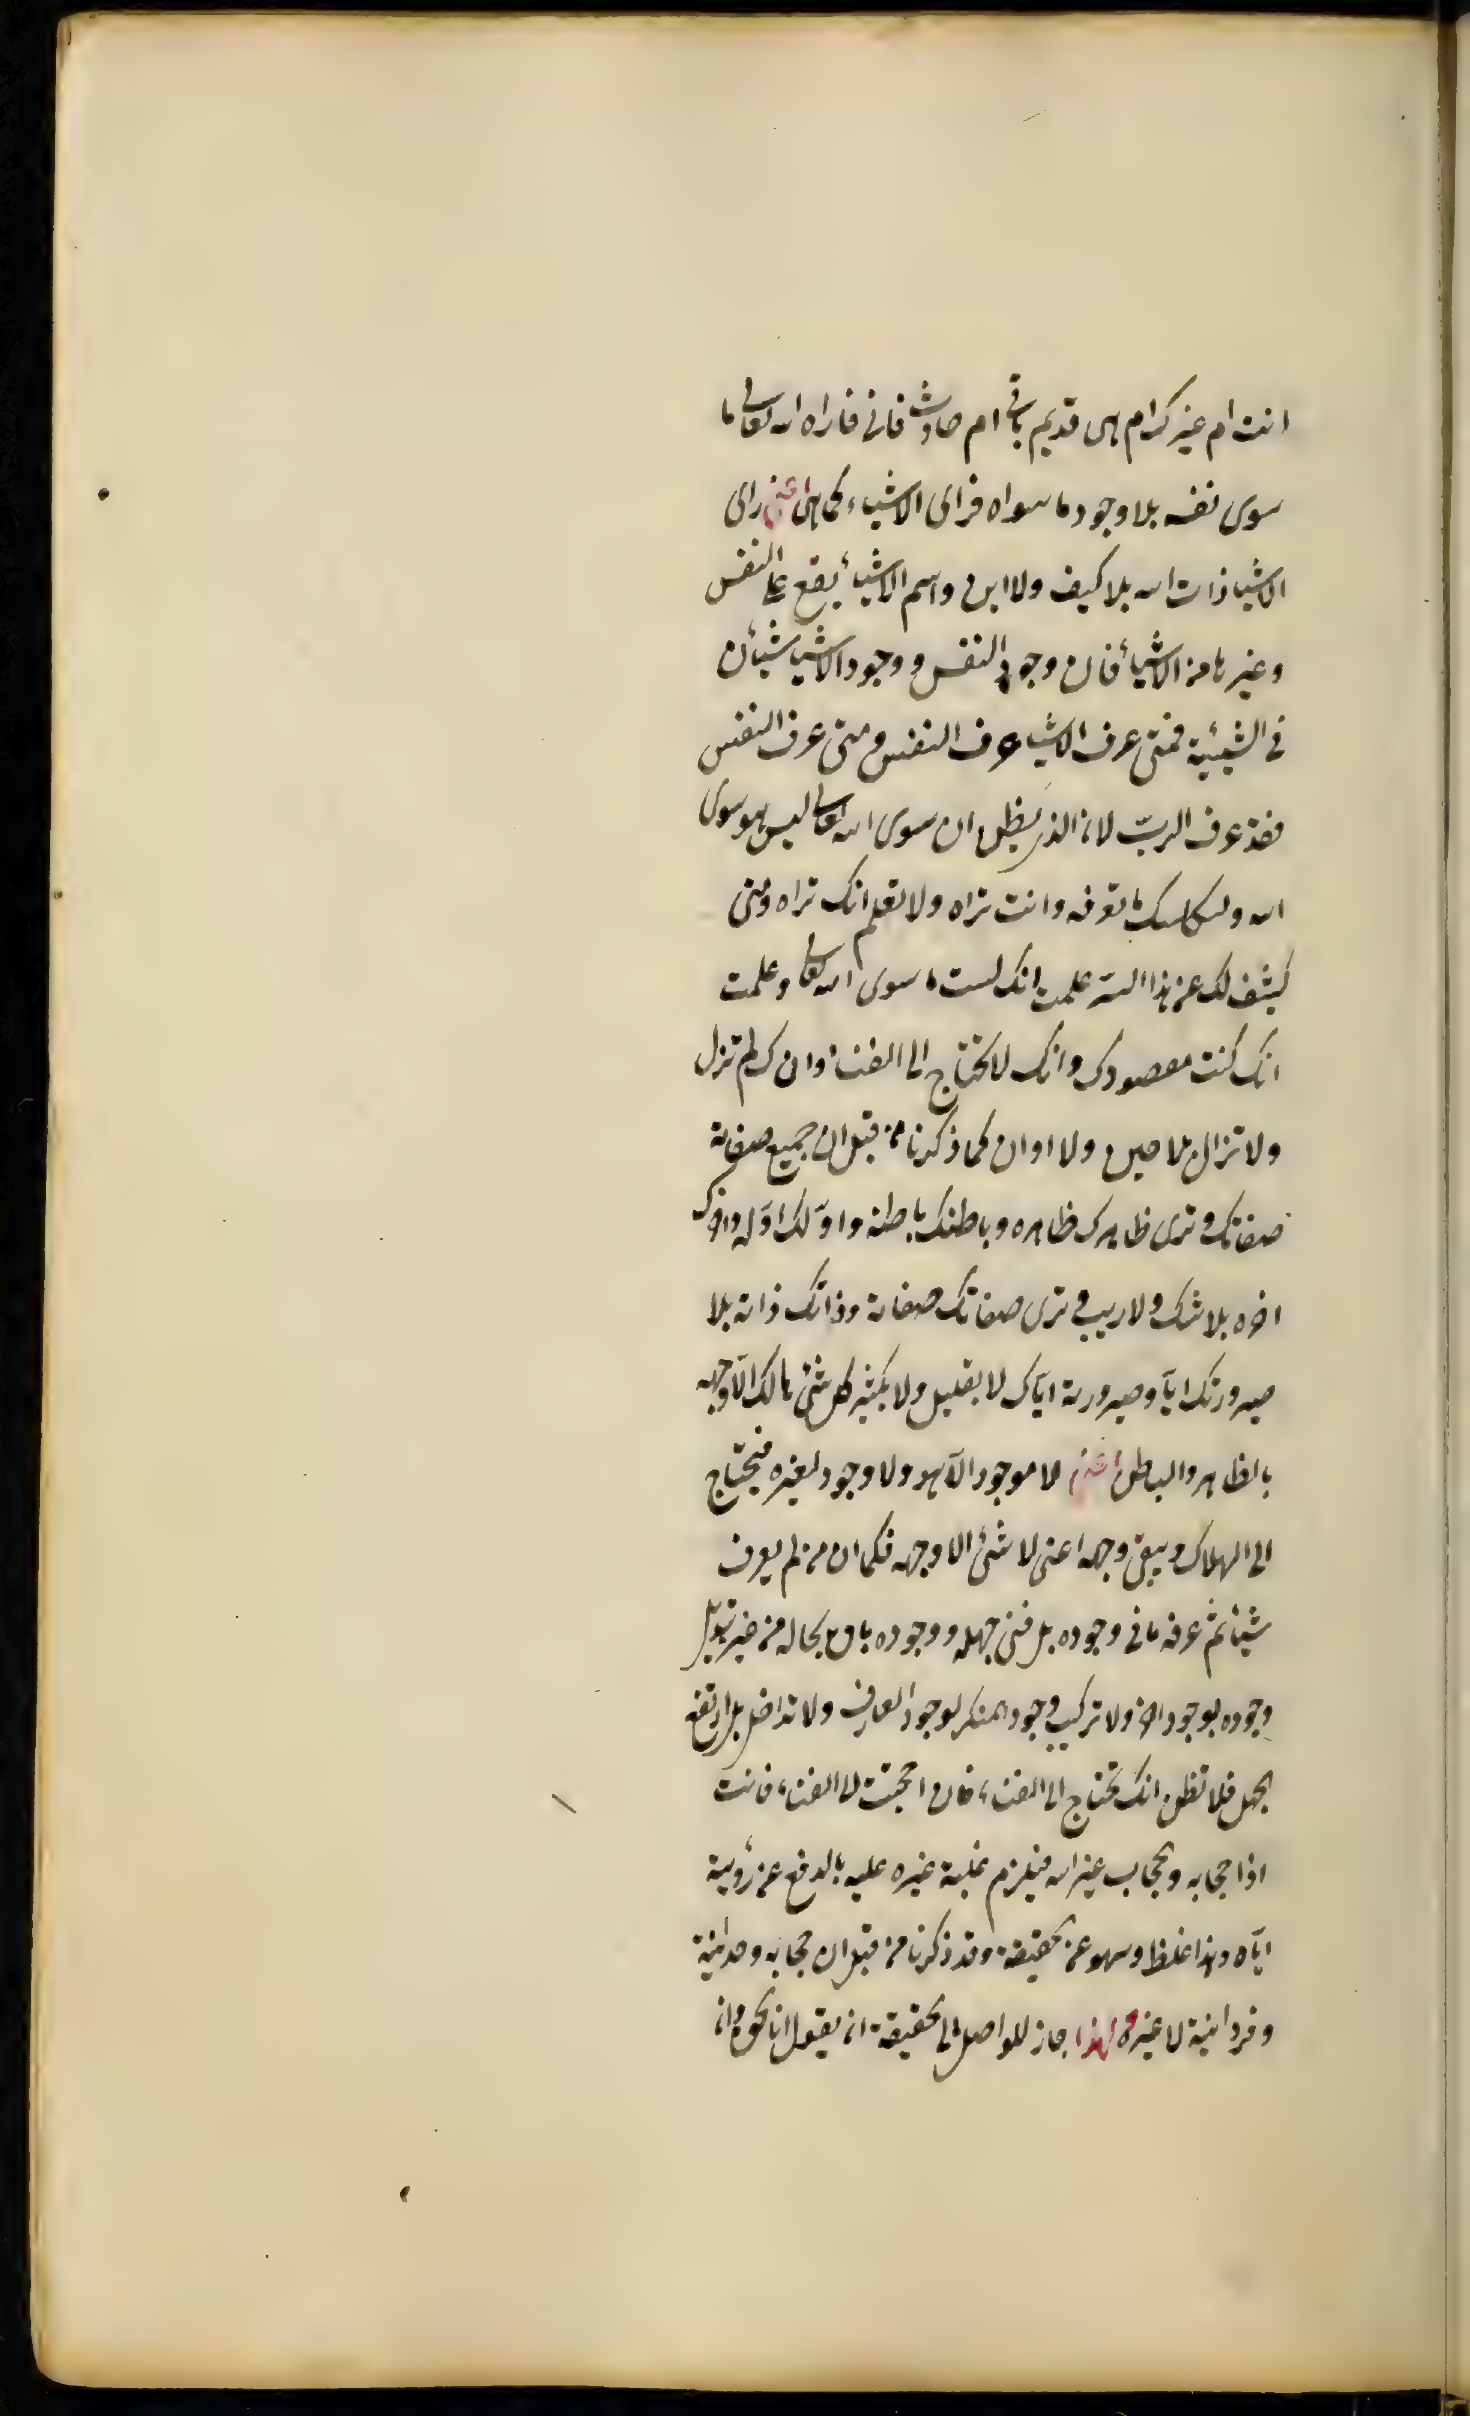 انت ام غيرك ام هى قديم باقى ام حادث فانى فاراه الله تعالى ما
سوى نفسه بلا وجود ما سواه فراى الاشياء كما هى اعنى راى
الاشيا ذات الله بلا كيف ولا اين واسم الاشياء يقع على النفس
وغيرها من الاشياء فان وجود النفس ووجود الاشيا شيئان
فى الشيئية فمتى عرف الاشيا عرف النفس ومتى عرف النفس
فقد عرف الربّ لانه الذى يظن ان سوى الله تعالى ليس هو سوى
الله ولكنك ما تعرفه وانت تراه ولا تعلم انك تراه ومتى
كشف لك عن هذا السرّ علمت انك لست ما سوى الله تعالى وعلمت
انك كنت مقصودك وانك لا تحتاج الى الفناء وانك لم تزل
ولا تزال بلا حين ولا اوان كما ذكرنا من قبل ان جميع صفاته
صفاتك وترى ظاهرك ظاهره وباطنك باطنه واوّلك اوّله واخرك
اخره بلا شك ولا ريب وترى صفاتك صفاته وذاتك ذاته بلا
صيرورتك ايّاه وصيرورته ايّاك لا بقليل ولا بكثير كل شئ هالك الّا وجهه
بالظاهر والباطن اعنى لا موجود الّا هو ولا وجود لغيره فيحتاج
الى الهلاك ويبقى وجهه اعنى لا شئ الا وجهه فكما ان من لم يعرف
شيئا ثم عرفه ما فنى وجوده بل فنى جهله ووجوده باق بحاله من غير تبديل
وجوده بوجود اخر ولا تركيب وجود المنكر لوجود العارف ولا تداخل بل ارتفع
الجهل فلا تظن انك تحتاج الى الفناء فان احتجت الى الفناء فانت
اذا حجابه والحجاب غير الله فيلزم غلبة غيره عليه بالدفع عن رؤيته
ايّاه وهذا غلط وسهو عن الحقيقة وقد ذكرنا من قبل ان حجابه وحدانيته
وفردانيته لا غيره ولهذا جاز للواصل الى الحقيقة ان يقول انا الحق وان